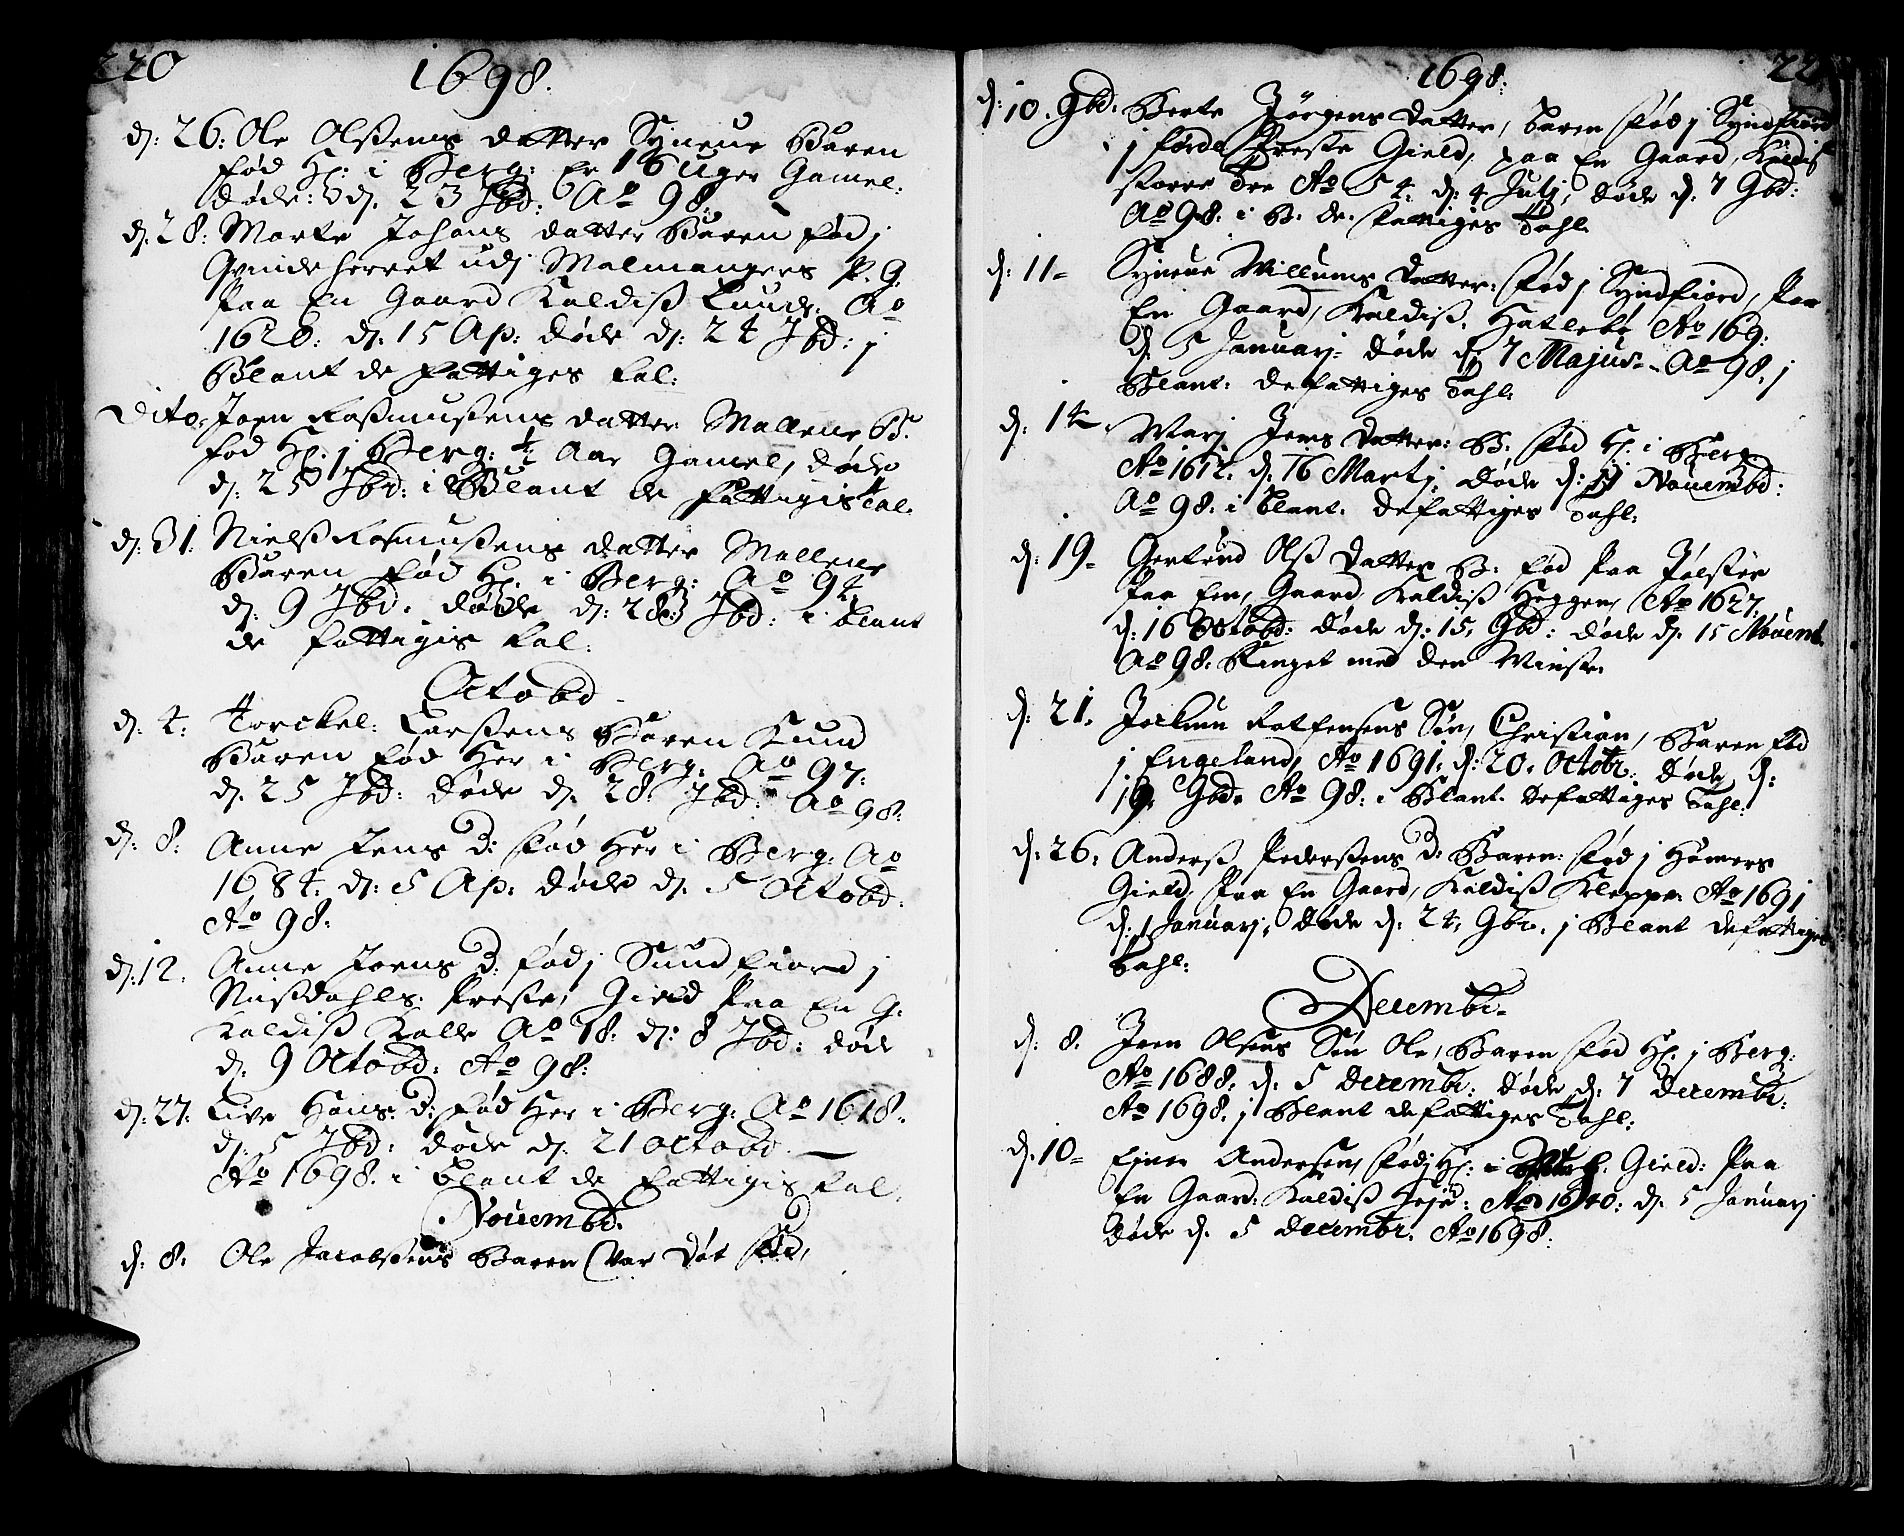 220
1698.
d: 26: Ole Olssens datter Syneue Baaren
fød H: i Berg: Er 16 Uger Gamel:
døde: d. 23 Jbd: Ao 98:
d. 28: Marte Johans datter Baaren fød j
Qvindeherret udj Malmangers P. G.
Paa En Gaard Kaldiss Lund: Ao
1626: d: 15 Ap: døde d: 24 Jbd: j
Blant de fattiges tal:
Dito: Joen Rassmussens datter Mallene B.
fød H: j Berg: ½ Aar Gamel, døde
d: 25 Jbd: i Blant de fattigis tal.
d: 31: Nielss Rasmussens datter Mallene
Baaren fød H: i Berg: Ao 94
d: 9 Jbd. døde d: 28 Jbd: i blant
de fattigis tal:
Octobd
d: 4: Torckel: Larssens Baren Kund
Baaren fød Her i Berg. Ao 97:
d: 25 Jbd: døde d: 28: Jbd: Ao 98:
d: 8: Anne Jens D: fød Her i Berg: Ao
1684: d: 5 Ap: døde d. 5 Octobd.
Ao 98:
d: 12. Anne Joens D: fød j Sundfiord j
Nissdahls: Preste Gield Paa En G:
Kaldiss Kalle Ao 78: d: 8 Jbd: døde
d. 9 Octobd: Ao 98:
d: 27: Live Hans D: fød Her i Berg: Ao 1618.
d: 5 Jbd: døde d: 21 Octobd.
Ao 1698. i blant de fattigis tal.
Nouembd.
d: 8. Ole Jacobssens Baren Var døt fød,
1698:
22
d: 10. Gbd: Berte Jörgens datter, baren fød j Syndfiord
j førde Preste Gield, paa En Gaard, Kaldis
store Tre Ao 54: d: 4 Julj, døde d. 7 Gbd:
Ao 98: i B. de fattiges Tahl.
d: 11 Syneue Willums datter: fød j Syndfiord, Paa
En Gaard, Kaldiss. Hatlebø Ao 169:
d. 5 Januarj døde d. 7 Majus. Ao 98. j
Blant: de fattiges Tahl:
d: 14. Marj Jens datter: B: fød H: i Berg
Ao 1612: d: 16 Martj, døde d: 11 Nouembd:
Ao 98: i blant. de fattiges Tahl:
d: 19 Gertrud Olss datter B: fød Paa Jölster
Paa En, Gaard Kaldiss Heggen, Ao 1627.
d: 16 Octobd: døde d: 15, Gbd: døde d. 15 Nouemb.
Ao 98: Ringet med den Minste
d: 21. Jockum Søn, Christian, Baren fød
j Engeland, Ao 1691: d: 20. Octobr: døde d:
19: Gbd. Ao 98: i Blant. de fattiges Tahl:
d: 26: Anderss Pederssens D: Baren: fød j Hammers
Gield, Paa En Gaard, Kaldiss Kleppe Ao 1691
d: 1 Januarj, døde d: 24: Gbr. j Blant de fattiges
Tahl:
Decembr.
d: 8. Joen Olsens Søn Ole, Baren fød H: j Berg:
Ao 1688: d. 5 Decembr: døde d: 7 Decembr:
Ao 1698. j Blant de fattiges Tahl:
d: 10 Ejner Andersen, fød j H: i Gield: Paa
En Gaard: Kaldiss: Ao 1640: d. 5 Januarj
døde d. 5 Decembr: Ao 1698: